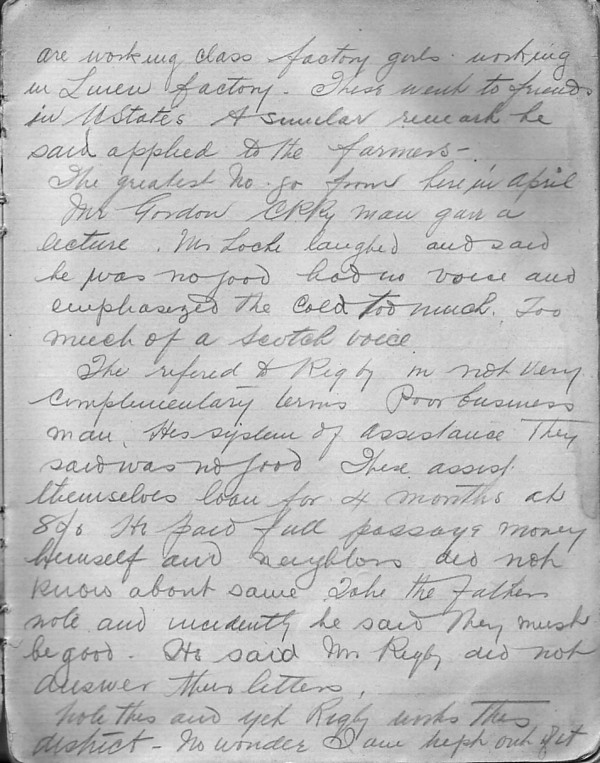 are working class factory girls working
in Linen factory - These went to friends
in U States A similar remark he
said applied to the farmers -
The greatest No. go from here in April
Mr Gordon CPRy man gave a
lecture. Mr Locke laughed and said
he was no good had no voice and
emphasized the cold too much. Too
much of a scotch voice
The refered to Rigby in not very
complimentary terms Poor business
man. His system of assistance They
said was no good These assist
themselves loan for 4 months at
8% He paid full passage money
himself and neighbors did not
know about same Take the Fathers
note and incidently he said they must
be good. He said Mr Rigby did not
answer their letters,
Note this and yet Rigby works This
district - No wonder I am kept out of it